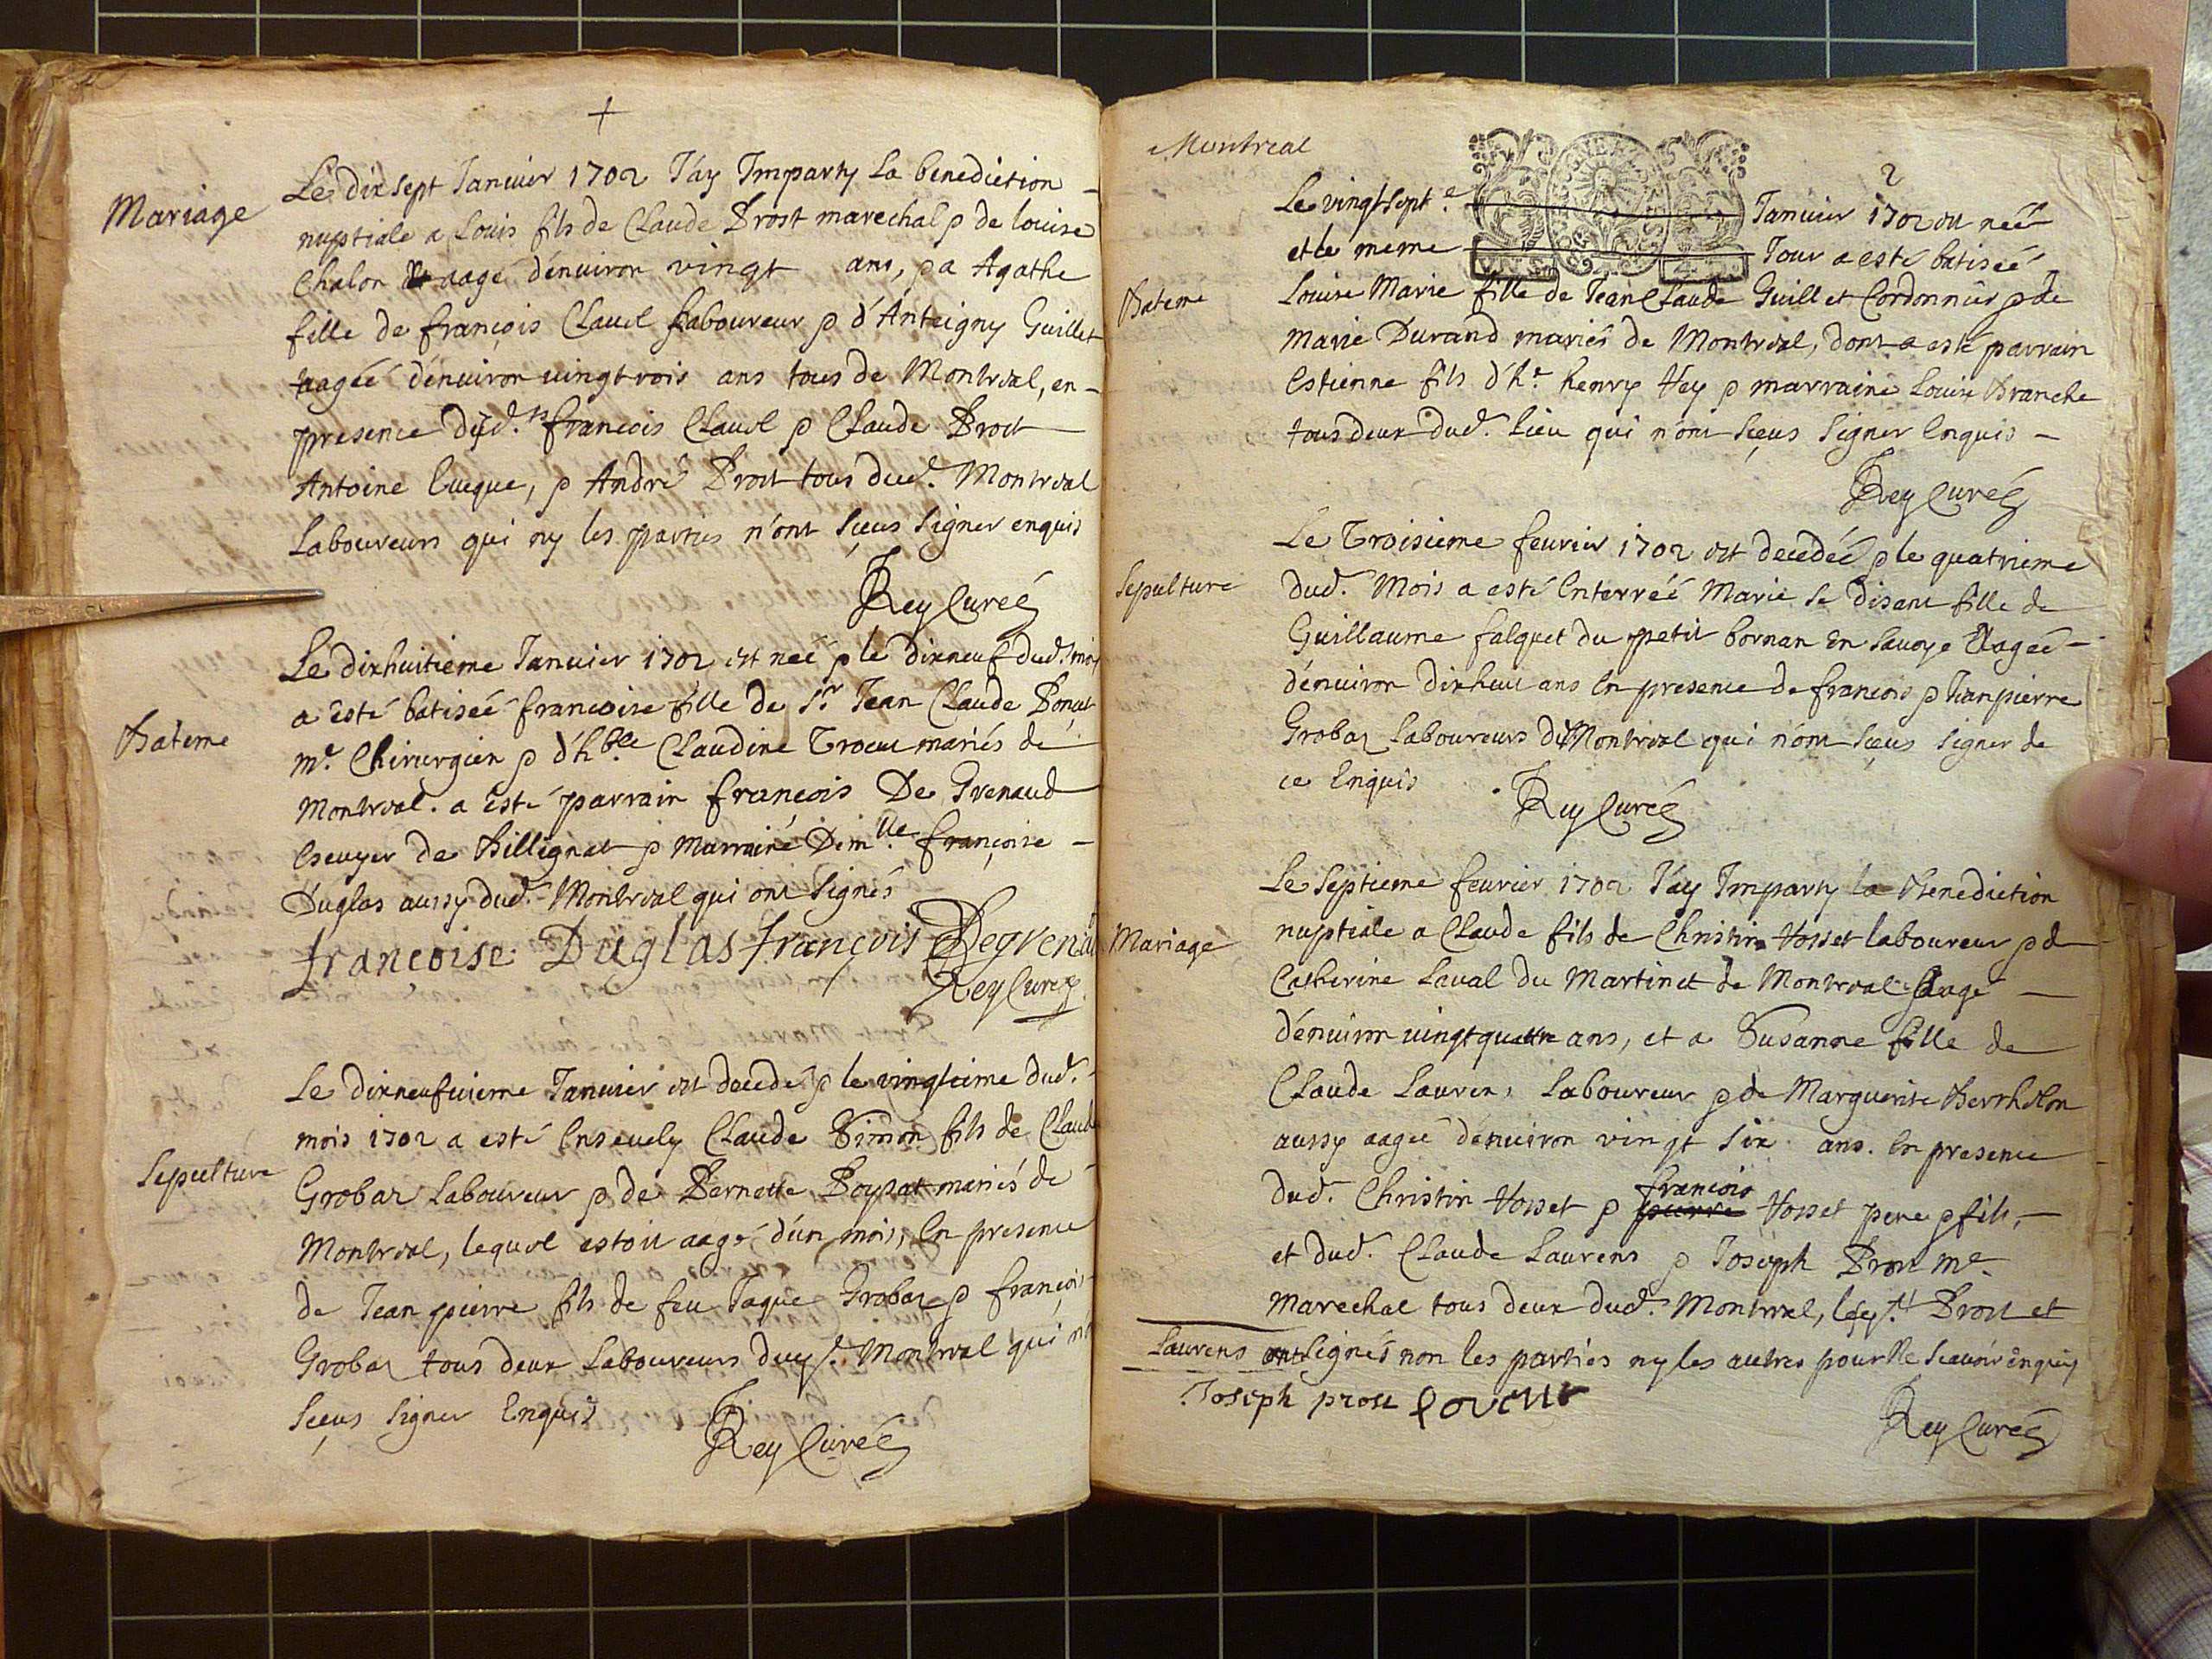 +
Mariage
Le dix sept Janvier 1702 J'ay Imparty La benediction
nuptiale a Louis fils de Claude Prost marechal p de louise
Chalon aagé d'environ vingt ans, p a Agathe
fille de françois Clavel Laboureur p d'Anteigny Guillet
aagéé d'environ vingt trois ans tous de Montreal, en
presence dud.ts françois Clavel p Claude Prost
Antoine Cuque, p André Prost tous dud. Montreal
Laboureurs qui ny les parties n'ont sçeus signer enquis
Rey Curé
Bateme
Le dixhuitieme Janvier 1702 est neé p le dixneuf dud. mois
a esté batiséé francoise fille de Sr Jean Claude Bonnet
Me. Chirurgien p d'hble Claudine Trocu mariés de
Montreal. a esté parrain françois De Grenaud
Escuyer de Billignat p marraine Demlle françoise
Duglas aussy dud. Montreal qui ont signés
françoise Duglas françois Degrenau
Rey Curé
Sepulture
Le dixneufvieme Janvier est decedé p le vingtieme dud.
mois 1702 a esté Ensevely Claude Simon fils de Claude
Grobaz Laboureur p de Pernette mariés de
Montreal, lequel estoit aagé d'un mois, En presence
de Jean pierre fils de feu Jaque Grobaz p françois
Grobaz tous deux Laboureurs Montreal qui
sçeus signer Enquis
Rey Curé
Montreal
2
Bateme
Le vingt sept.e Janvier 1702 est néé
et le meme Jour a esté batiséé
Louise Marie fille de Jean Claude Guillet Cordonnier p de
Marie Durand mariés de Montreal, dont a esté parrain
Estienne fils d'h.e henry Vey p marraine Louise Branche
tous deux dud. Lieu qui n'ont sçeus signer Enquis
Rey Curé
Sepulture
Le Troisieme fevrier 1702 est decedéé p le quatrieme
dud. Mois a esté Enterréé Marie se disant fille de
Guillaume falquet du petit bornan En Savoye aagéé
d'environ dixhuit ans En presence de françois p Jean pierre
Grobaz Laboureurs de Montreal qui n'ont sçeus signer de
ce Enquis
Rey Curé
Mariage
Le septieme fevrier 1702 J'ay Imparty la Benediction
nuptiale a Claude fils de Christin Vosset laboureur p de
Catherine Laval du Martinet de Montreal aagé
d'environ vingt quattre ans, et a Susanne fille de
Claude Laurens Laboureur p de Marguerite Berthelon
aussy aagéé d'environ vingt six ans. En presence
dud. Christin Vosset p françois pierre Vosset pere p fils,
et dud. Claude Laurens p Joseph Prost Me.
Marechal tous deux dud. Montreal, Prost et
Laurens ont signés non les parties ny les autres pour ne scavoir enquis
Joseph prost
Rey Curé